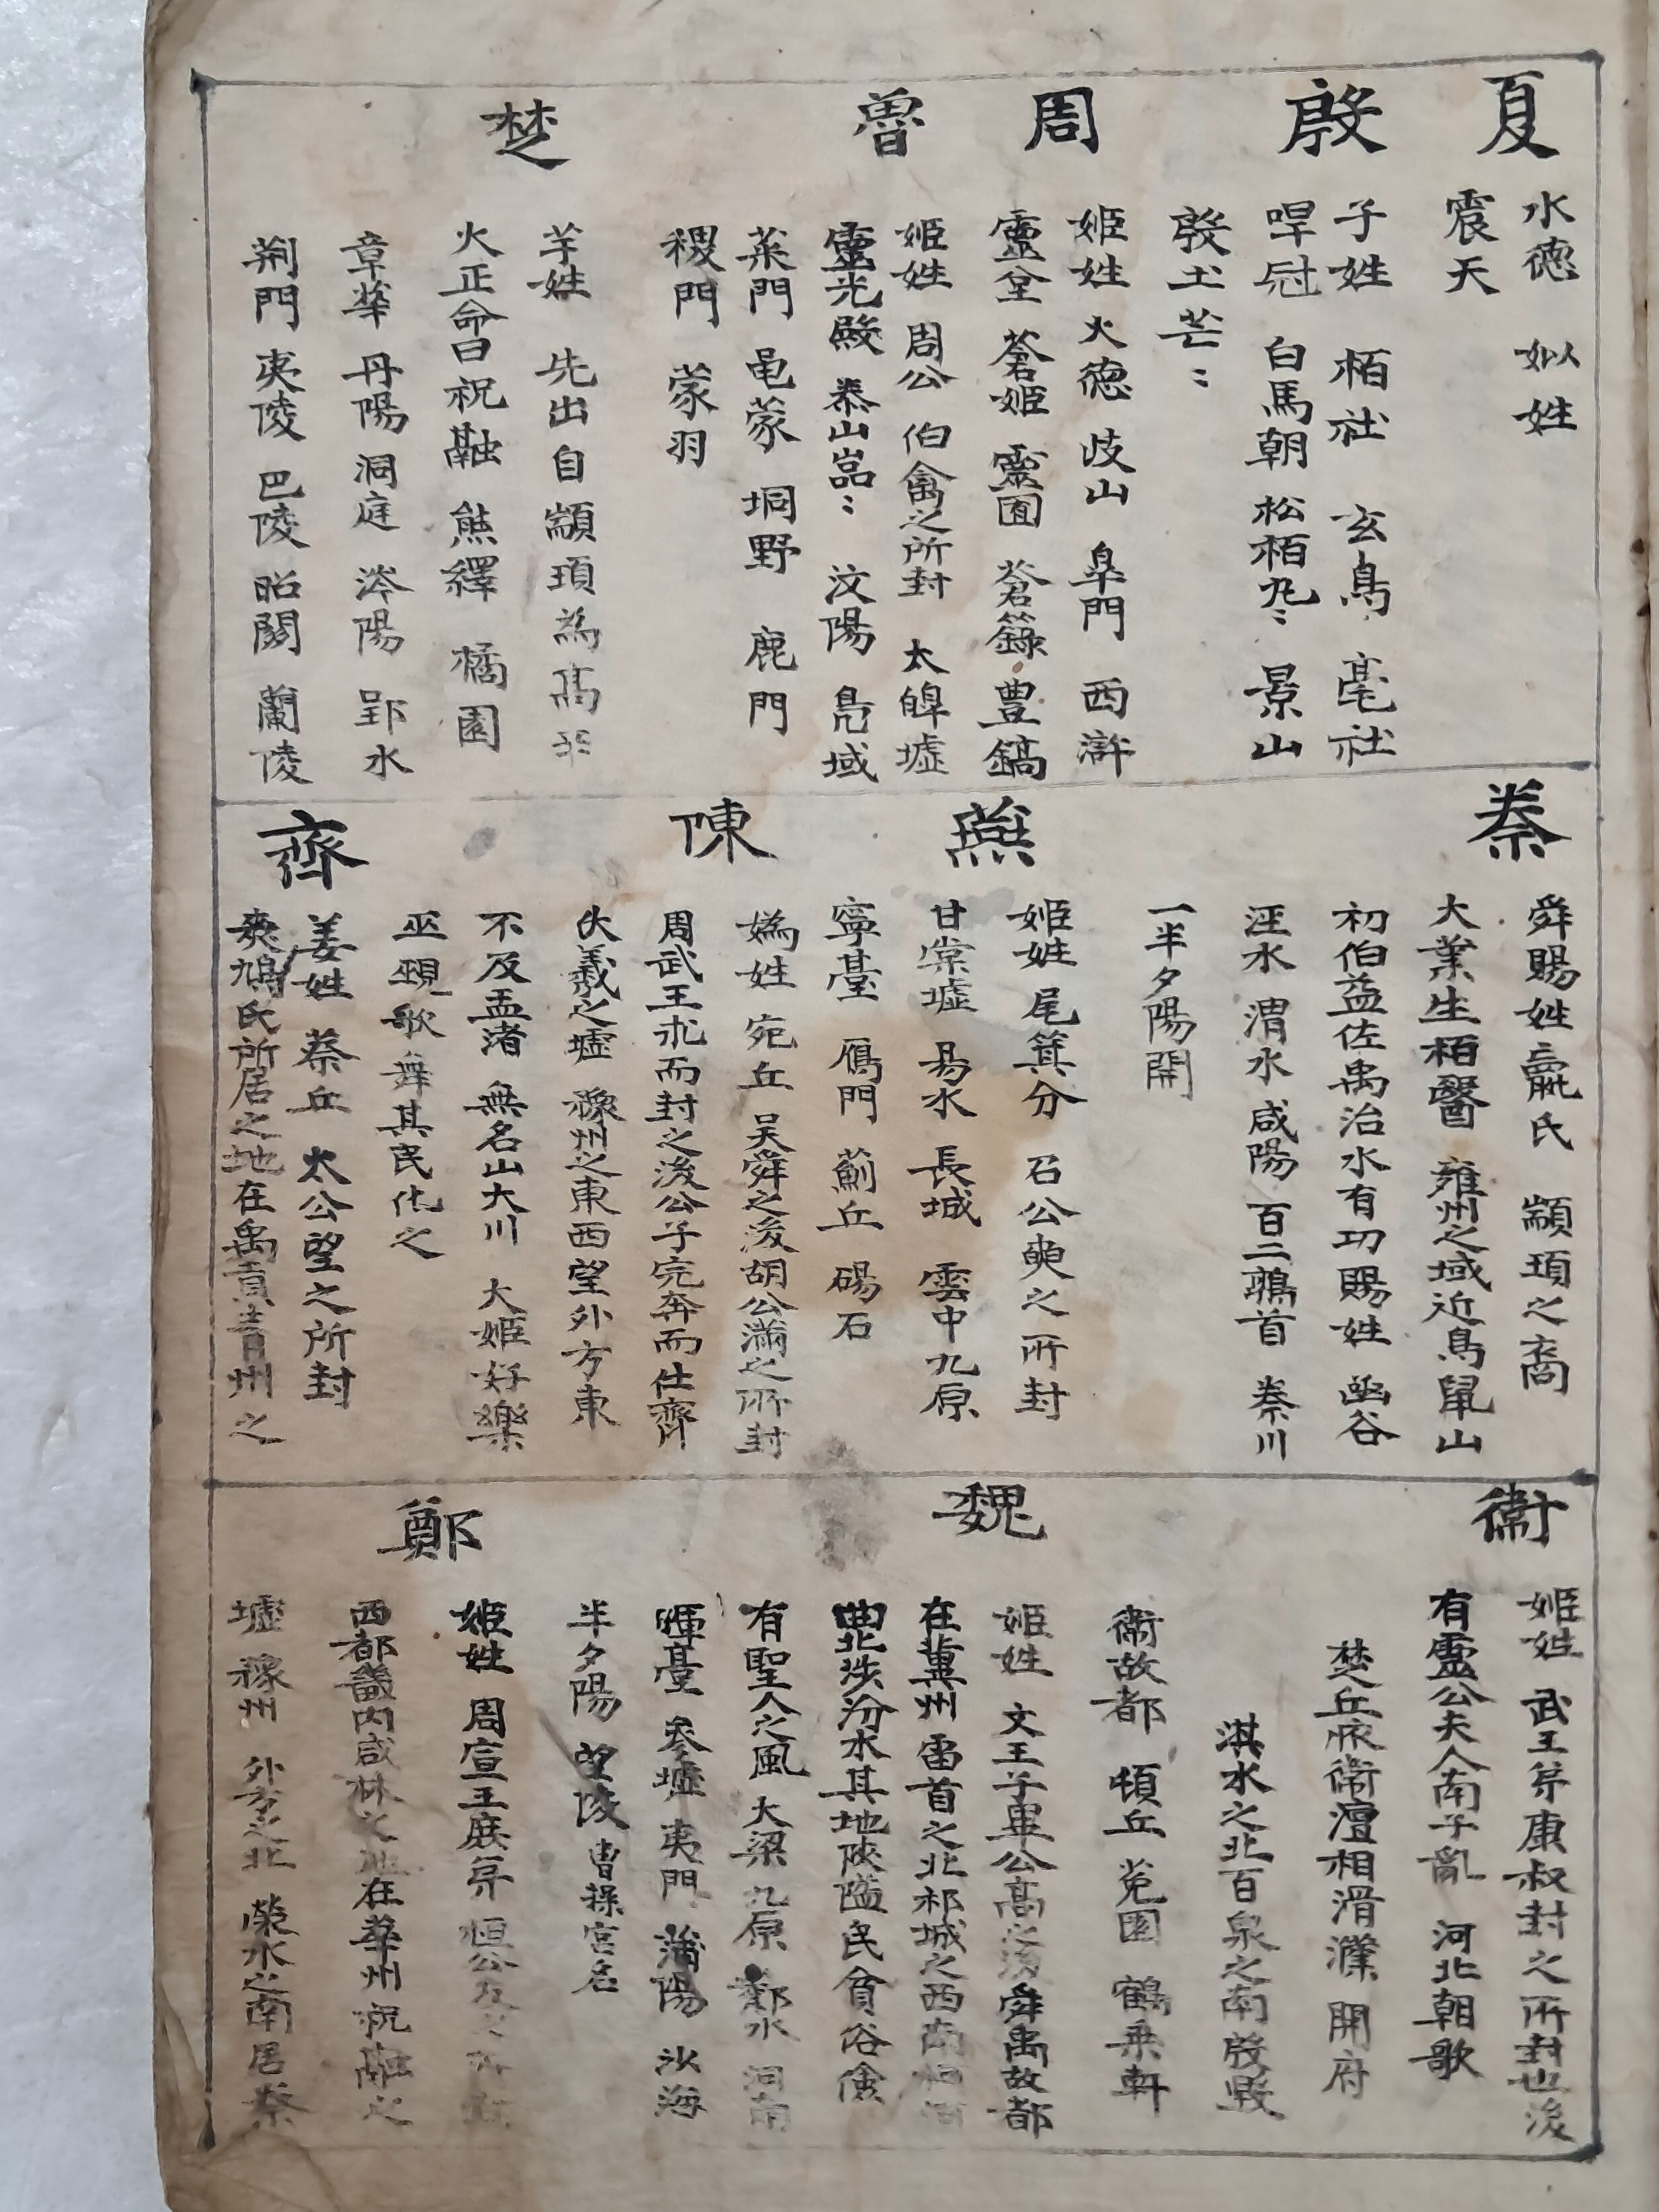 夏
水德 姒姓
震天
殷
子姓 栢社 玄鳥 亳社
冔冠 白馬朝 松栢丸〻 景山
殷土芒〻
周
姬姓 火德 歧山 皐門 西滸
靈坌 蒼姬 靈囿 蒼籙 豊鎬
魯
姬姓 周公 伯禽之所封 太皡墟
靈光殿 泰山嵓〻 汶陽 鳧域
萊門 黽蒙 坰野 鹿門
稷門 蒙羽
楚
芊姓 先出自顓頊為高辛
火正命曰祝融 熊繹 橘園
章華 丹陽 洞庭 涔陽 郢水
荊門 夷陵 巴陵 昭關 蘭陵
秦
舜賜姓嬴氏 顓頊之裔
大業生栢翳 雍州之域近鳥鼠山
初伯益佐禹治水有功賜姓 凾谷
涇水 渭水 咸陽 百二鶉首 秦川
一半夕陽開
燕
姬姓 尾箕分 召公奭之所封
甘棠墟 易水 長城 雲中九原
寧臺 鴈門 薊丘 碣石
陳
媯姓 宛丘 吳舜之後胡公滿之所封
周武王求而封之後公子完奔而仕齊
伏羲之墟 豫州之東西望外方東
不及孟渚 無名山大川 大姬好樂
巫覡歌舞其民化之
齊
姜姓 蔡丘 太公望之所封
爽鳩氏所居之地在禹貢青州之
衛
姬姓 武王弟康叔封之所封也後
有靈公夫人南子亂 河北朝歌
楚丘 衛澶相滑濮 開府
淇水之北百泉之南殷墟
衛故都 頓丘 菟園 鶴乗軒
魏
姬姓 文王子畢公高之後舜禹故都
在冀州 雷首之北祁城之西南
曲北涉汾水其地陝隘民貧俗儉
有聖人之風 大梁 九原 鄴水 洞南
暉臺 參墟 夷門 蒲陽 沙海
半夕陽 望陵 曹操宮名
鄭
姬姓 周宣王庶弟 恒公友之所封
西都畿內咸林之地在華州祝融之
墟 豫州 外方之北 滎水之南居秦